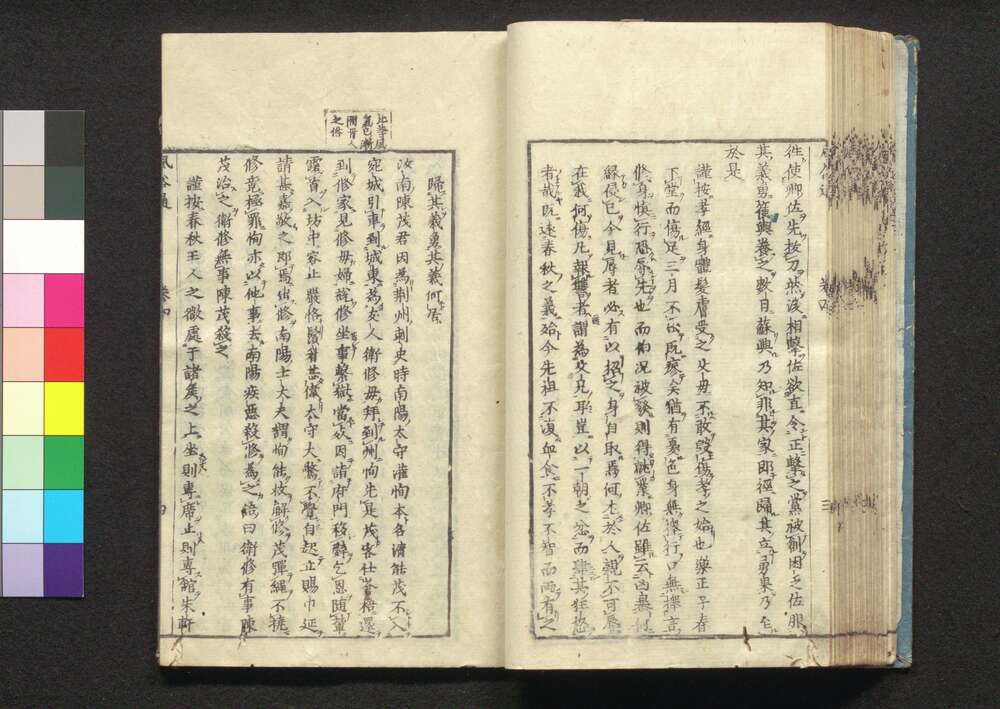 風俗通 卷四 三
徃使鄉佐先拔刀然後相擊佐欲直令正擊之黨被創困乏佐服
其義勇箯輿養之數日蘇興乃知非其家即徑歸其立勇果乃至
於是
謹按孝經身體髮膚受之父母不敢毀傷孝之始也樂正子春
下堂而傷足三月不出既瘳矣猶有憂色身無擇行口無擇言
修身慎行恐辱先也而伯況被發則得就業鄉佐雖云凶暴何
緣侵己今見辱者必有以招之身自取焉何尤於人親不可辱
在我何傷凡報讐者謂為父兄耳豈以一朝之忿而肆其狂怒
者哉既遠春秋之義殆令先祖不復血食不孝不智而兩有之
歸其義勇其義何居
汝南陳茂君因為荊州刺史時南陽太守灌恂本名清能茂不入
宛城引車到城東為友人衛修母拜到州恂先是茂客仕蒼梧還
到修家見修母婦說修坐事繫獄當死因詣府門移辭乞恩隨輩
露首入坊中容止嚴恪鬚眉甚偉太守大驚不覺自起立賜巾延
請甚嘉敬之即焉出修南陽士大夫謂恂能救解修茂彈繩不撓
修竟極罪恂亦以他事去南陽疾惡殺修為之語曰衛修有事陳
茂治之衛修無事陳茂殺之
謹按春秋王人之微處于諸侯之上坐則專席止則專館朱軒
比等風
氣已漸
開晉人
之俗
風俗通 卷四 四